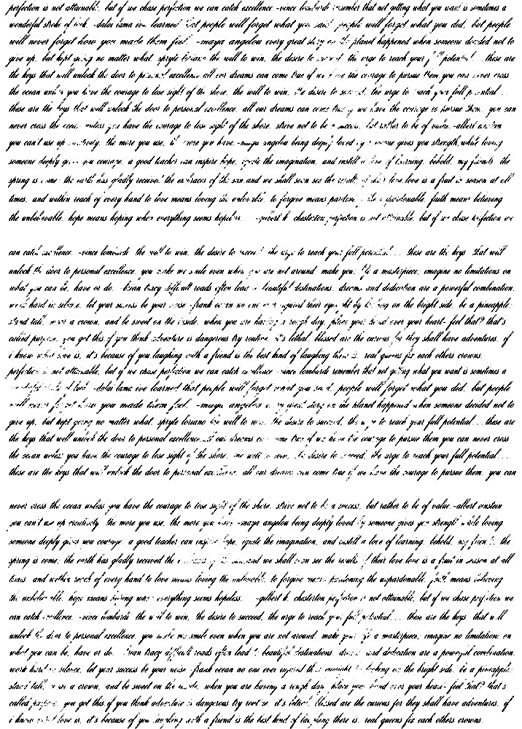 perfection is not attainable, but if we chase perfection we can catch excellence -vince lombardi remember that not getting what you want is sometimes a
wonderful stroke of luck -dalai lama ive learned that people will forget what you said, people will forget what you did, but people
will never forget how you made them feel. -maya angelou every great story on the planet happened when someone decided not to
give up, but kept going no matter what. spryte loriano the will to win, the desire to succeed, the urge to reach your full potential... these are
the keys that will unlock the door to personal excellence. all our dreams can come true if we have the courage to pursue them you can never cross
the ocean unless you have the courage to lose sight of the shore. the will to win, the desire to succeed, the urge to reach your full potential...
these are the keys that will unlock the door to personal excellence. all our dreams can come true if we have the courage to pursue them. you can
never cross the ocean unless you have the courage to lose sight of the shore. strive not to be a success, but rather to be of value. -albert einstein
you can't use up creativity. the more you use, the more you have. -maya angelou being deeply loved by someone gives you strength, while loving
someone deeply gives you courage. a good teacher can inspire hope, ignite the imagination, and instill a love of learning. behold, my friends, the
spring is come; the earth has gladly received the embraces of the sun, and we shall soon see the results of their love. love is a fruit in season at all
times, and within reach of every hand. to love means loving the unlovable. to forgive means pardoning the unpardonable. faith means believing
the unbelievable. hope means hoping when everything seems hopeless. -gilbert k. chesterton perfection is not attainable, but if we chase perfection we
can catch excellence. -vince lombardi the will to win, the desire to succeed, the urge to reach your full potential... these are the keys that will
unlock the door to personal excellence. you make me smile even when you are not around. make your life a masterpiece; imagine no limitations on
what you can be, have or do. -brian tracy difficult roads often lead to beautiful destinations. dreams and dedication are a powerful combination.
work hard in silence, let your success be your noise -frank ocean no one ever injured their eyesight by looking on the bright side. be a pineapple:
stand tall, wear a crown, and be sweet on the inside. when you are having a rough day, place your hand over your heart- feel that? that's
called purpose. you got this if you think adventure is dangerous try routine, it's lethal. blessed are the curious for they shall have adventures. if
i know what love is, it's because of you laughing with a friend is the best kind of laughing there is. real queens fix each others crowns.
perfection is not attainable, but if we chase perfection we can catch excellence -vince lombardi remember that not getting what you want is sometimes a
wonderful stroke of luck -dalai lama ive learned that people will forget what you said, people will forget what you did, but people
will never forget how you made them feel. -maya angelou every great story on the planet happened when someone decided not to
give up, but kept going no matter what. spryte loriano the will to win, the desire to succeed, the urge to reach your full potential... these are
the keys that will unlock the door to personal excellence. all our dreams can come true if we have the courage to pursue them you can never cross
the ocean unless you have the courage to lose sight of the shore. the will to win, the desire to succeed, the urge to reach your full potential...
these are the keys that will unlock the door to personal excellence. all our dreams can come true if we have the courage to pursue them. you can
never cross the ocean unless you have the courage to lose sight of the shore. strive not to be a success, but rather to be of value. -albert einstein
you can't use up creativity. the more you use, the more you have. -maya angelou being deeply loved by someone gives you strength, while loving
someone deeply gives you courage. a good teacher can inspire hope, ignite the imagination, and instill a love of learning. behold, my friends, the
spring is come; the earth has gladly received the embraces of the sun, and we shall soon see the results of their love. love is a fruit in season at all
times, and within reach of every hand. to love means loving the unlovable. to forgive means pardoning the unpardonable. faith means believing
the unbelievable. hope means hoping when everything seems hopeless. -gilbert k. chesterton perfection is not attainable, but if we chase perfection we
can catch excellence. -vince lombardi the will to win, the desire to succeed, the urge to reach your full potential... these are the keys that will
unlock the door to personal excellence. you make me smile even when you are not around. make your life a masterpiece; imagine no limitations on
what you can be, have or do. -brian tracy difficult roads often lead to beautiful destinations. dreams and dedication are a powerful combination.
work hard in silence, let your success be your noise -frank ocean no one ever injured their eyesight by looking on the bright side. be a pineapple:
stand tall, wear a crown, and be sweet on the inside. when you are having a rough day, place your hand over your heart- feel that? that's
called purpose. you got this if you think adventure is dangerous try routine, it's lethal. blessed are the curious for they shall have adventures. if
i know what love is, it's because of you laughing with a friend is the best kind of laughing there is. real queens fix each others crowns.